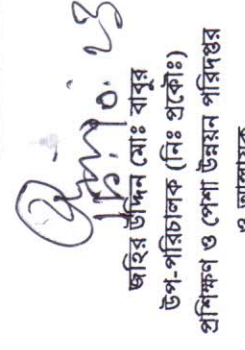 জহির উদ্দিন মোঃ বাবুর
উপ-পরিচালক (নিঃ প্রকৌঃ)
প্রশিক্ষণ ও পেশা উন্নয়ন পরিদপ্তর
ও আহ্বায়ক